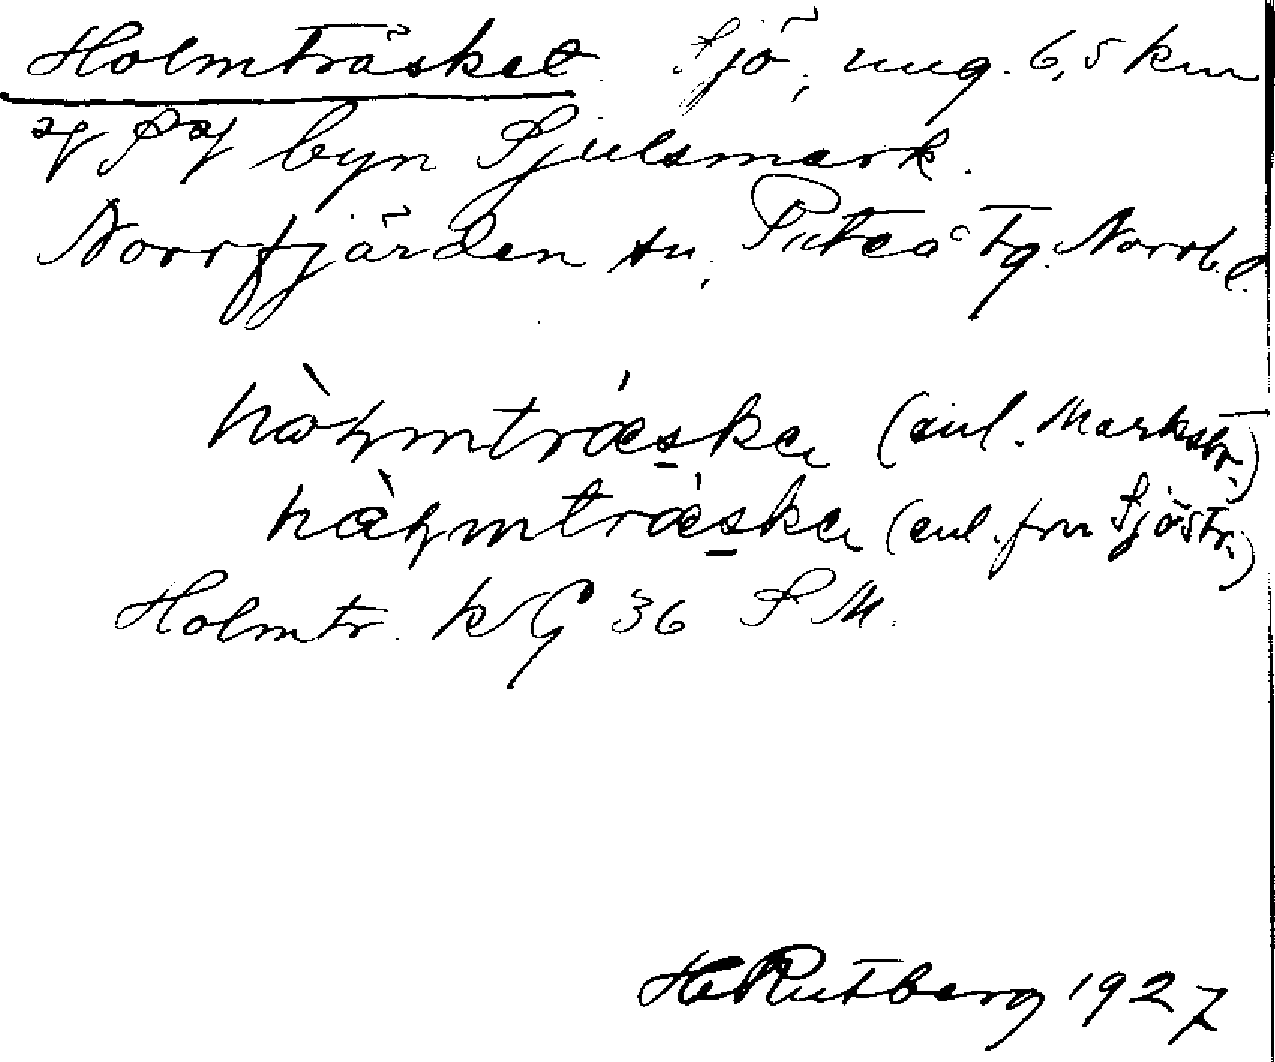 Holmträsket. Sjö, ung. 6,5 km
af S af byn Sjulsmark.
Norrfjärden sn, Piteå tg. Norrb. l.
(enl. Markstr.)
(enl. fru Sjöstr.)
Holmtr. kG 36 SM.
HRutberg 1927